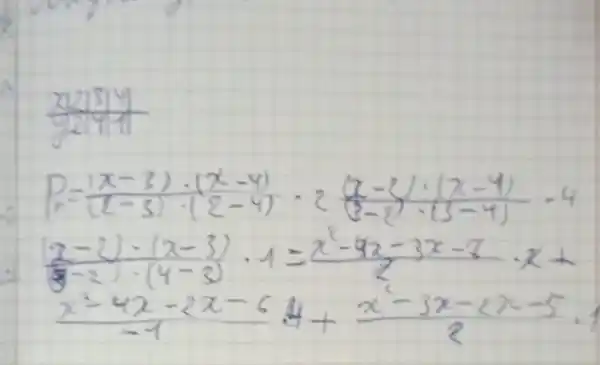 x|2|3|4|
y|2|4|1|
Pₙ=(x-3)·(x-4)/(2-3)·(2-4) · 2 (x-2)·(x-4)/(3-2)·(3-4) · 4
(x-2)·(x-3)/(4-2)·(4-3) · 1 = x²-4x-3x-7/2 · 2 +
x²-4x-2x-6/-1 · 4 + x²-3x-2x-5/2 · 1